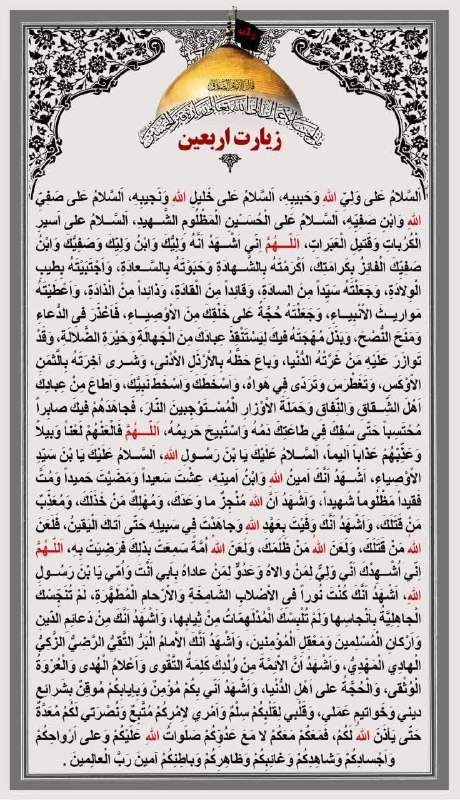 زيارت اربعين
اَلسَّلامُ عَلى وَلِيِّ اللهِ وَحَبيبِهِ، اَلسَّلامُ عَلى خَليلِ اللهِ وَنَجيبِهِ، اَلسَّلامُ عَلى صَفِيِّ
اللهِ وَابْنِ صَفِيِّهِ، اَلسَّلامُ عَلى الْحُسَيْنِ الْمَظْلُومِ الشَّهيدِ، اَلسَّلامُ على اَسيرِ
الْكُرُباتِ وَقَتيلِ الْعَبَراتِ، اَللّهُمَّ اِنّي اَشْهَدُ اَنَّهُ وَلِيُّكَ وَابْنُ وَلِيِّكَ وَصَفِيُّكَ وَابْنُ
صَفِيِّكَ الْفائِزُ بِكَرامَتِكَ، اَكْرَمْتَهُ بِالشَّهادَةِ وَحَبَوْتَهُ بِالسَّعادَةِ، وَاَجْتَبَيْتَهُ بِطيبِ
الْوِلادَةِ، وَجَعَلْتَهُ سَيِّداً مِنَ السادَةِ، وَقائِداً مِنَ الْقادَةِ، وَذائِداً مِنْ الْذادَةِ، وَاَعْطَيْتَهُ
مَواريثَ الاَنْبِياءِ، وَجَعَلْتَهُ حُجَّةً عَلى خَلْقِكَ مِنَ الاَوْصِياءِ، فَاَعْذَرَ في الدُّعاءِ
وَمَنَحَ النُّصْحَ، وَبَذَلَ مُهْجَتَهُ فيكَ لِيَسْتَنْقِذَ عِبادَكَ مِنَ الْجَهالَةِ وَحَيْرَةِ الضَّلالَةِ، وَقَدْ
تَوازَرَ عَلَيْهِ مَنْ غَرَّتْهُ الدُّنْيا، وَباعَ حَظَّهُ بِالاَرْذَلِ الاَدْنى، وَشَرى آخِرَتَهُ بِالثَّمَنِ
الاَوْكَسِ، وَتَغَطْرَسَ وَتَرَدّى في هَواهُ، وَاَسْخَطَكَ وَاَسْخَطَ نَبِيَّكَ، وَاَطاعَ مِنْ عِبادِكَ
اَهْلَ الشِّقاقِ وَالنِّفاقِ وَحَمَلَةَ الاَوْزارِ الْمُسْتَوْجِبينَ النّارَ، فَجاهَدَهُمْ فيكَ صابِراً
مُحْتَسِباً حَتّى سُفِكَ في طاعَتِكَ دَمُهُ وَاسْتُبيحَ حَريمُهُ، اَللّهُمَّ فَالْعَنْهُمْ لَعْناً وَبيلاً
وَعَذِّبْهُمْ عَذاباً اَليماً، اَلسَّلامُ عَلَيْكَ يَا بْنَ رَسُولِ اللهِ، اَلسَّلامُ عَلَيْكَ يَا بْنَ سَيِّدِ
الاَوْصِياءِ، اَشْهَدُ اَنَّكَ اَمينُ اللهِ وَابْنُ اَمينِهِ، عِشْتَ سَعيداً وَمَضَيْتَ حَميداً وَمُتَّ
فَقيداً مَظْلُوماً شَهيداً، وَاَشْهَدُ اَنَّ اللهَ مُنْجِزٌ ما وَعَدَكَ، وَمُهْلِكٌ مَنْ خَذَلَكَ، وَمُعَذِّبٌ
مَنْ قَتَلَكَ، وَاَشْهَدُ اَنَّكَ وَفَيْتَ بِعَهْدِ اللهِ وَجاهَدْتَ في سَبيلِهِ حَتّى اَتاكَ الْيَقينُ، فَلَعَنَ
اللهُ مَنْ قَتَلَكَ، وَلَعَنَ اللهُ مَنْ ظَلَمَكَ، وَلَعَنَ اللهُ اُمَّةً سَمِعَتْ بِذلِكَ فَرَضِيَتْ بِهِ، اَللّهُمَّ
اِنّي اُشْهِدُكَ اَنّي وَلِيٌّ لِمَنْ والاهُ وَعَدُوٌّ لِمَنْ عاداهُ بِاَبي اَنْتَ وَاُمّي يَا بْنَ رَسُولِ
اللهِ، اَشْهَدُ اَنَّكَ كُنْتَ نُوراً في الاَصْلابِ الشّامِخَةِ وَالاَرْحامِ الْمُطَهَّرَةِ، لَمْ تُنَجِّسْكَ
الْجاهِلِيَّةُ بِاَنْجاسِها وَلَمْ تُلْبِسْكَ الْمُدْلَهِمّاتُ مِنْ ثِيابِها، وَاَشْهَدُ اَنَّكَ مِنْ دَعائِمِ الدّينِ
وَاَرْكانِ الْمُسْلِمينَ وَمَعْقِلِ الْمُؤْمِنينَ، وَاَشْهَدُ اَنَّكَ الاِمامُ الْبَرُّ التَّقِيُّ الرَّضِيُّ الزَّكِيُّ
الْهادِي الْمَهْدِيُّ، وَاَشْهَدُ اَنَّ الاَئِمَّةَ مِنْ وُلْدِكَ كَلِمَةُ التَّقْوى وَاَعْلامُ الْهُدى وَالْعُرْوَةُ
الْوُثْقى، وَالْحُجَّةُ على اَهْلِ الدُّنْيا، وَاَشْهَدُ اَنّي بِكُمْ مُؤْمِنٌ وَبِاِيابِكُمْ مُوقِنٌ بِشَرائِعِ
ديني وَخَواتيمِ عَمَلي، وَقَلْبي لِقَلْبِكُمْ سِلْمٌ وَاَمْري لاَمْرِكُمْ مُتَّبِعٌ وَنُصْرَتي لَكُمْ مُعَدَّةٌ
حَتّى يَأذَنَ اللهُ لَكُمْ، فَمَعَكُمْ مَعَكُمْ لا مَعَ عَدُوِّكُمْ صَلَواتُ اللهِ عَلَيْكُمْ وَعلى اَرْواحِكُمْ
وَاَجْسادِكُمْ وَشاهِدِكُمْ وَغائِبِكُمْ وَظاهِرِكُمْ وَباطِنِكُمْ آمينَ رَبَّ الْعالِمينَ .